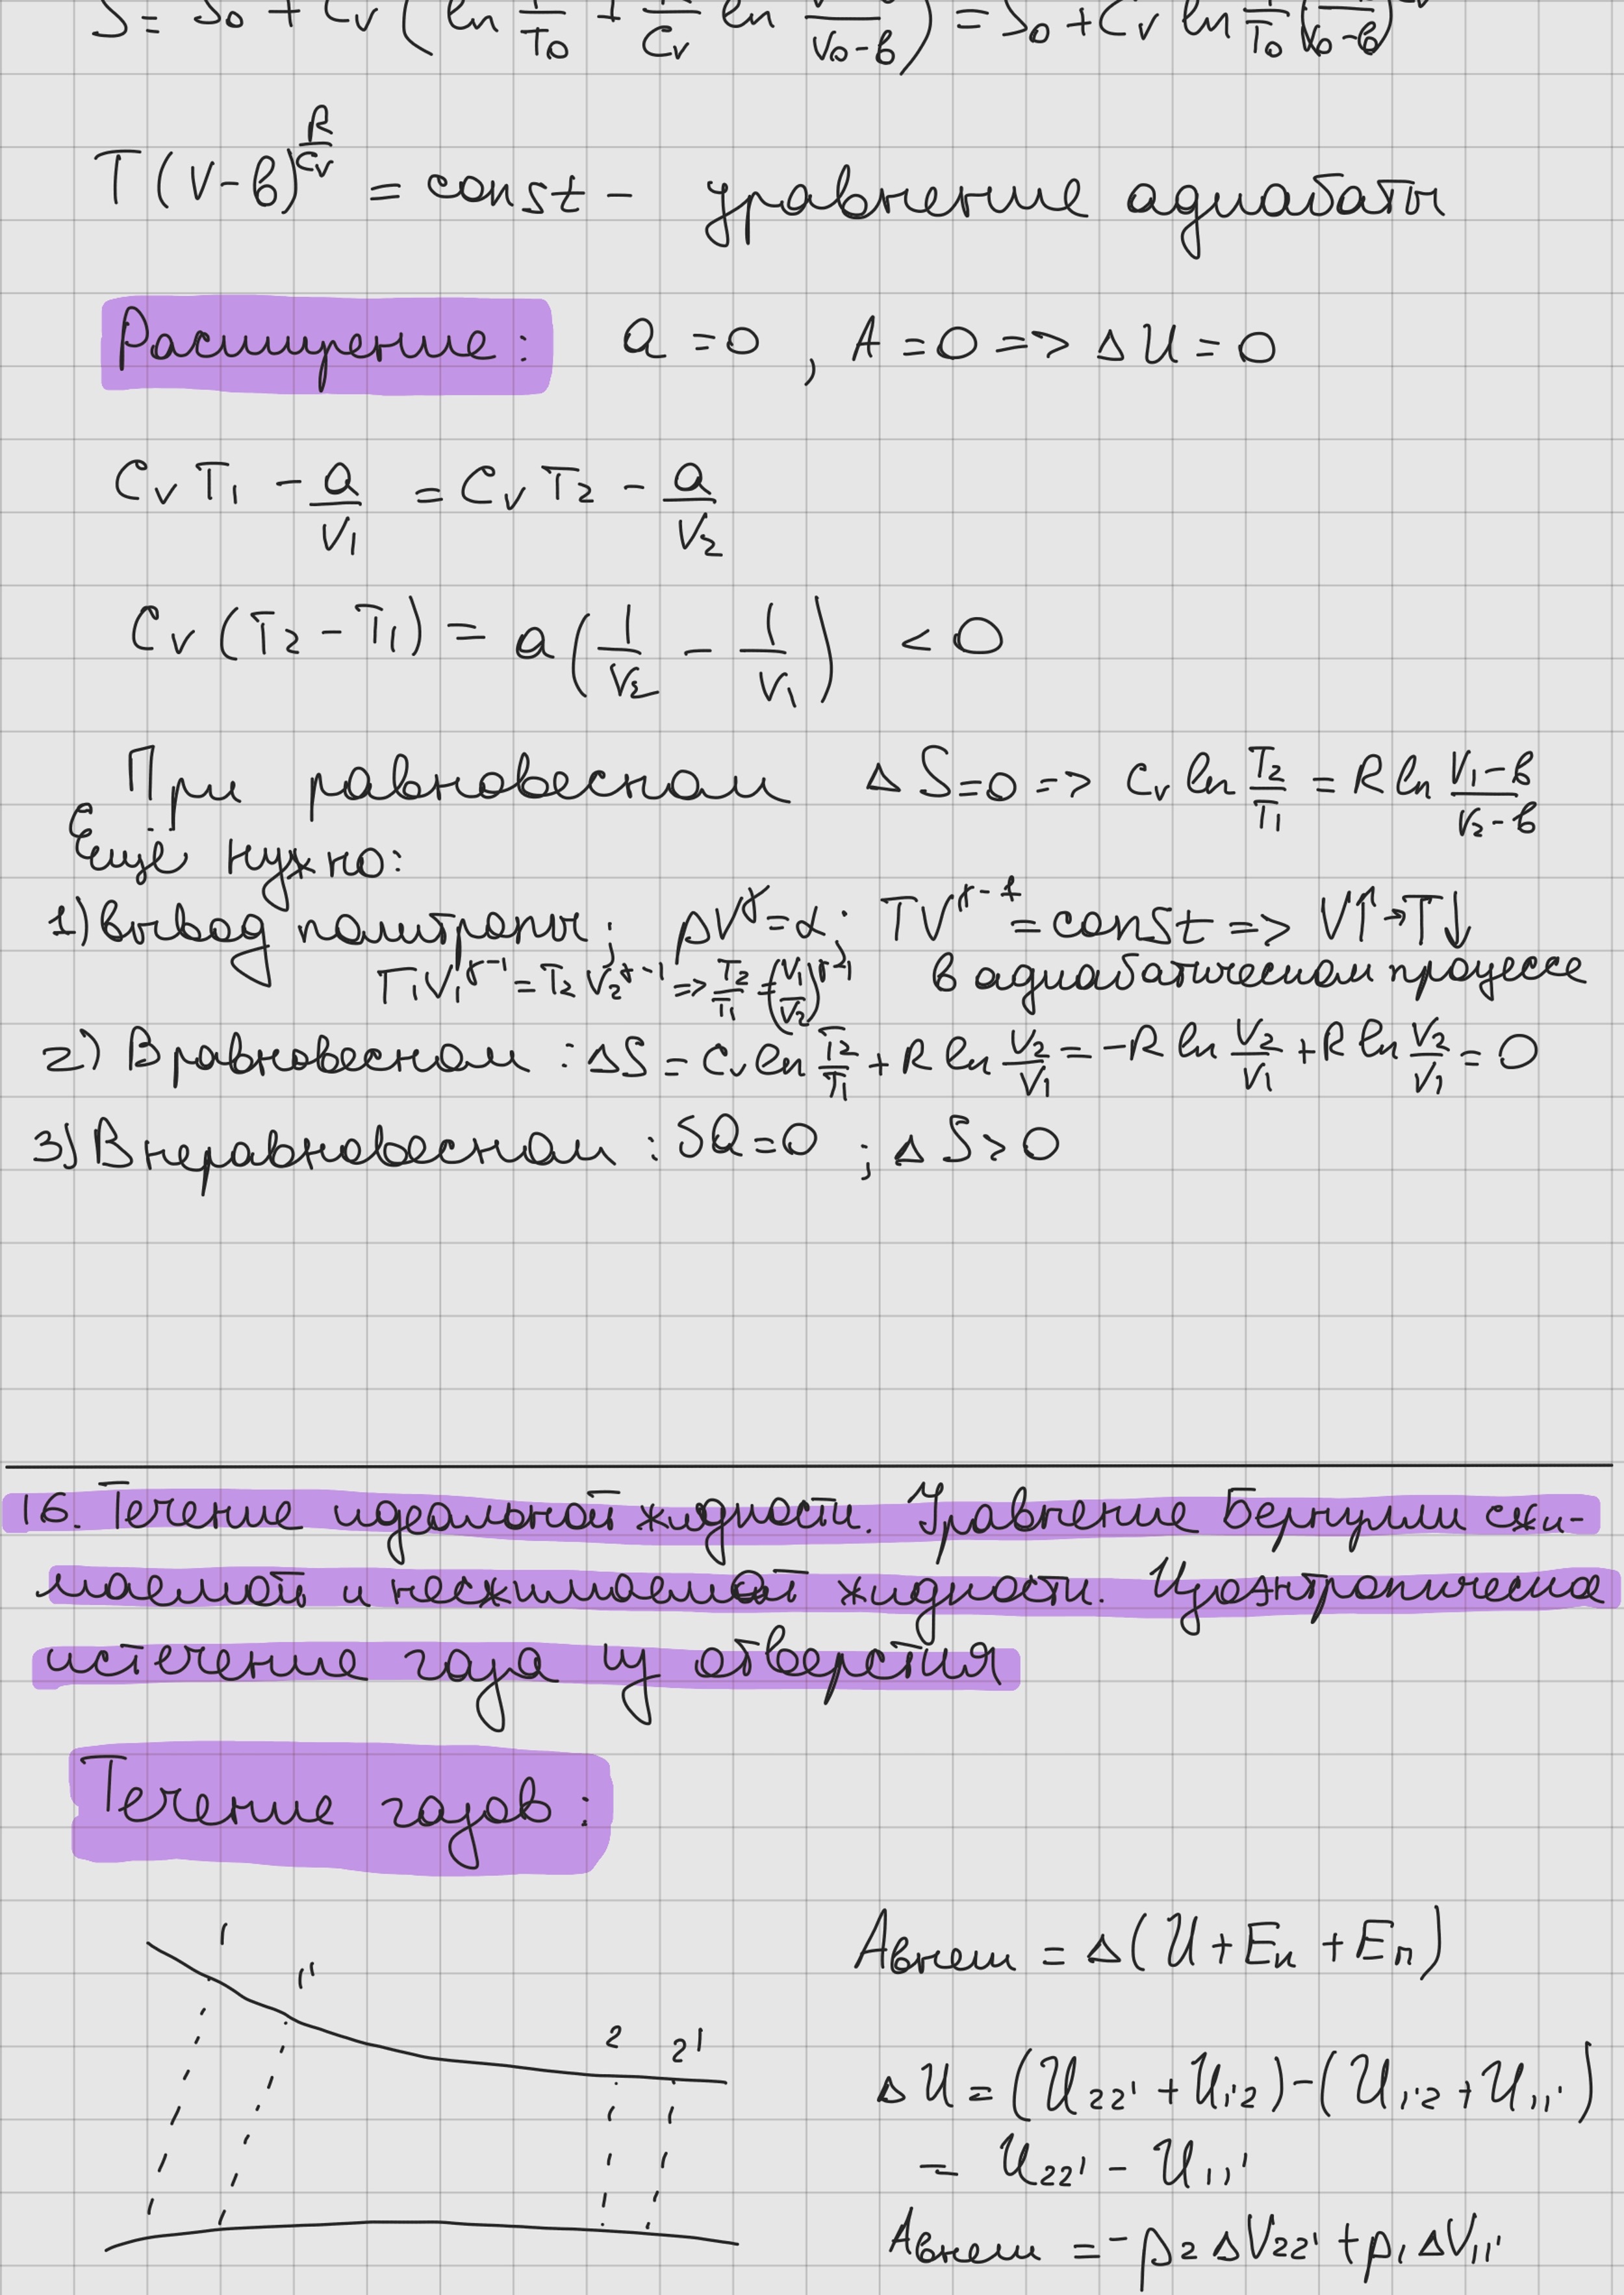 S = S₀ + Cv (ln T/T₀ + R/Cv ln V-в/V₀-в) = S₀ + Cv ln T/T₀ (V-в/V₀-в)^R/Cv
T(V-в)^R/Cv = const - уравнение адиабаты
Расширение: Q = 0 , A = 0 => ΔU = 0
Cv T₁ - a/V₁ = Cv T₂ - a/V₂
Cv (T₂ - T₁) = a(1/V₂ - 1/V₁) < 0
При равновесном ΔS=0 => Cv ln T₂/T₁ = R ln V₁-в/V₂-в
Ещё нужно:
1) вывод политропы; pV^γ = α; TV^γ-1 = const => V↑ → T↓
T₁V₁^γ-1 = T₂V₂^γ-1 => T₂/T₁ = (V₁/V₂)^γ-1 в адиабатическом процессе
2) В равновесном : ΔS = Cv ln T₂/T₁ + R ln V₂/V₁ = -R ln V₂/V₁ + R ln V₂/V₁ = 0
3) В неравновесном : δQ = 0 ; ΔS > 0
16. Течение идеальной жидкости. Уравнение Бернулли сжи-
маемой и несжимаемой жидкости. Изоэнтропическое
истечение газа из отверстия
Течение газов:
1 1' 2 2'
Aвнеш = Δ(U + Eк + Eп)
ΔU = (U₂₂' + U₁'₂) - (U₁'₂ + U₁₁')
= U₂₂' - U₁₁'
Aвнеш = -p₂ΔV₂₂' + p₁ΔV₁₁'